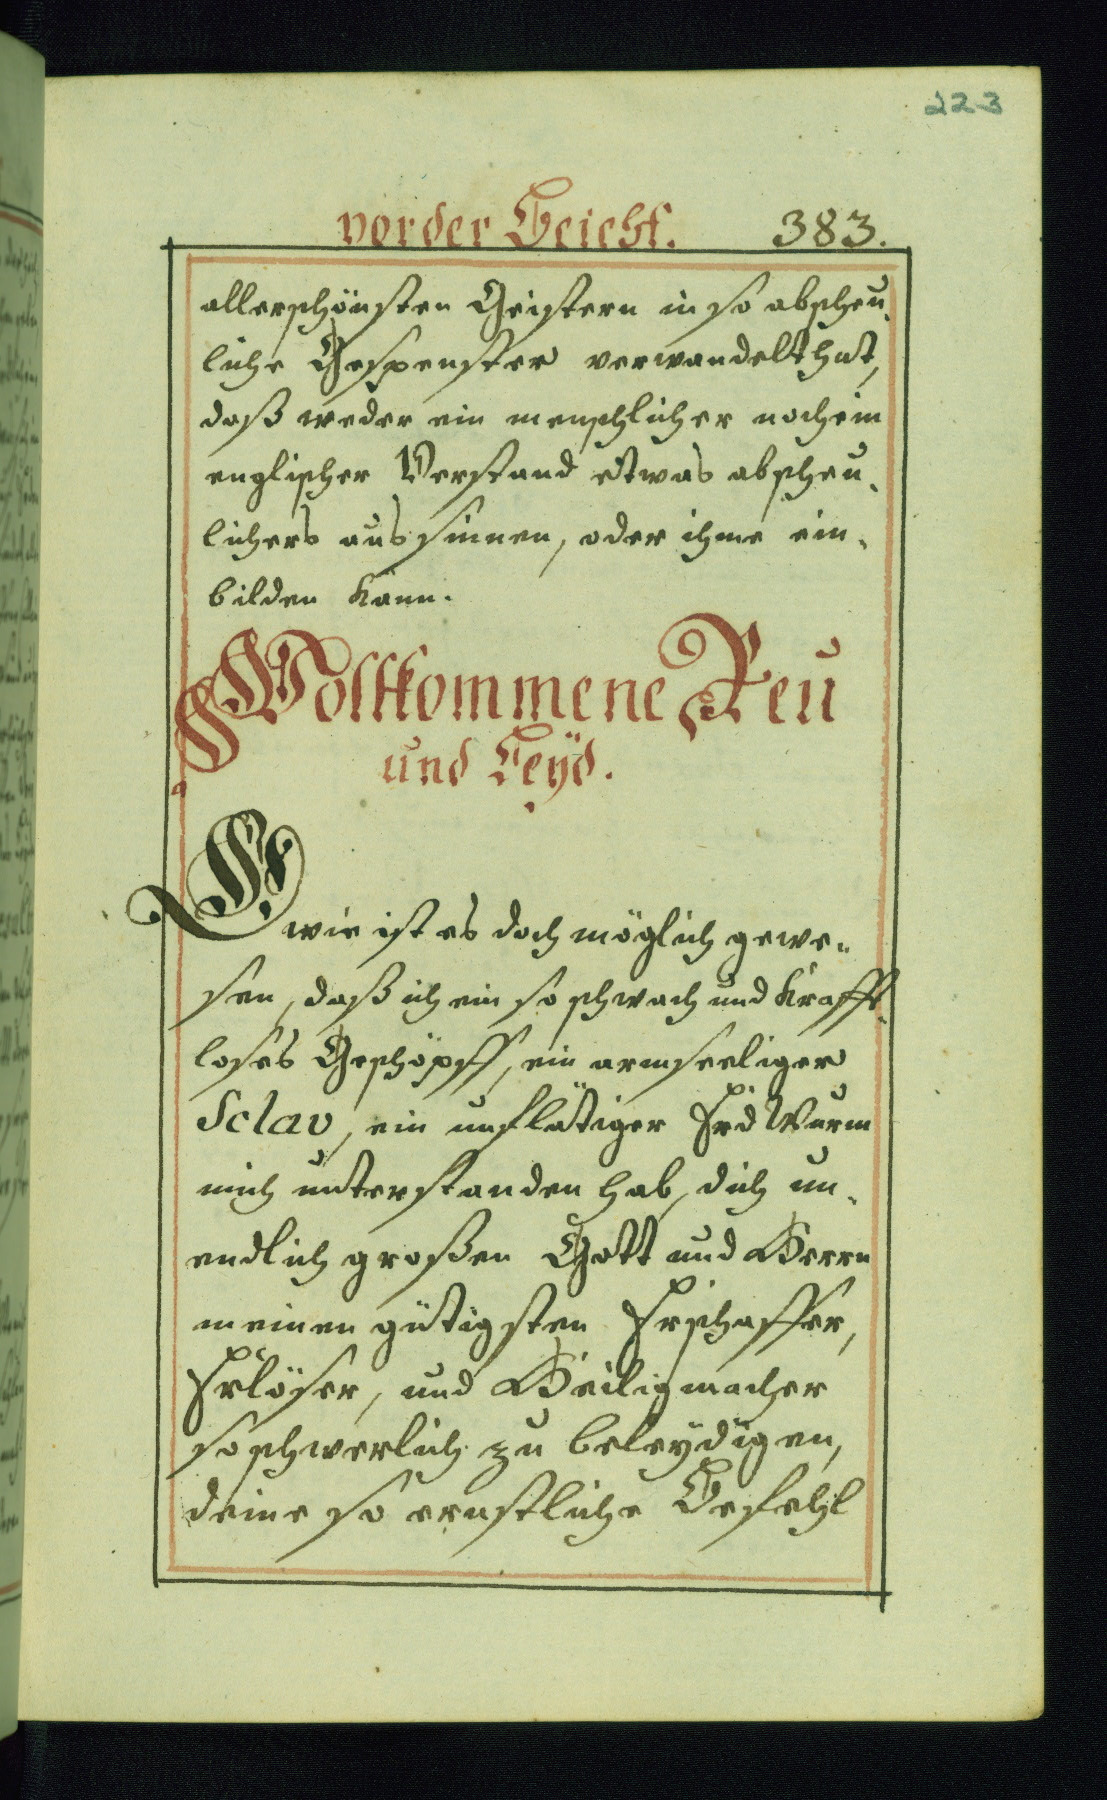 223
vor der Beicht. 383.
allerschönsten Geistern in so abscheu¬
liche Gespenster verwandelt hat,
daß weder ein menschlicher noch ein
englischer Verstand etwas abscheu¬
lichers aussinnen, oder ihme ein¬
bilden kann.
Vollkommene Reu
und Leyd.
O wie ist es doch möglich gewe¬
sen, daß ich ein so schwach und krafft¬
loses Geschöpff, ein armseeliger
Sclav, ein unflätiger Erd Wurm
mich unterstanden hab, dich un¬
endlich großen Gott und Herrn
meinen gütigsten Erschaffer,
Erlöser, und Heiligmacher
so schwerlich zu beleydigen,
deine so ernstliche Befehl